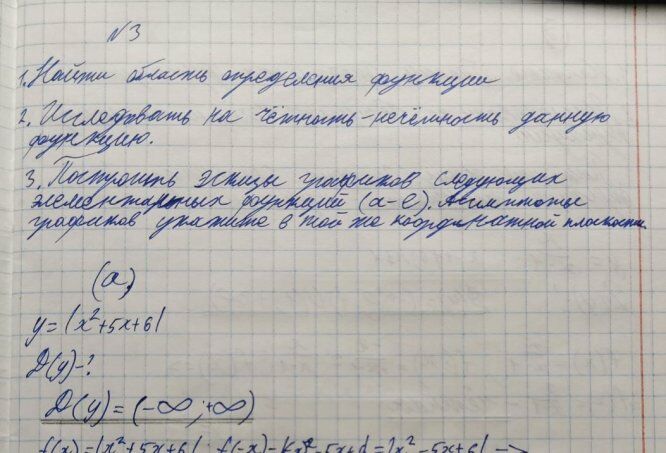 №3
1. Найти область определения функции
2. Исследовать на чётность-нечётность данную
функцию.
3. Построить эскизы графиков следующих
элементарных функций (а-е). Асимптоты
графиков укажите в той же координатной плоскости.
(а)
y = |x²+5x+6|
D(y)-?
D(y) = (-∞; +∞)
f(x)=|x²+5x+6|; f(-x)= =|x²-5x+6| →